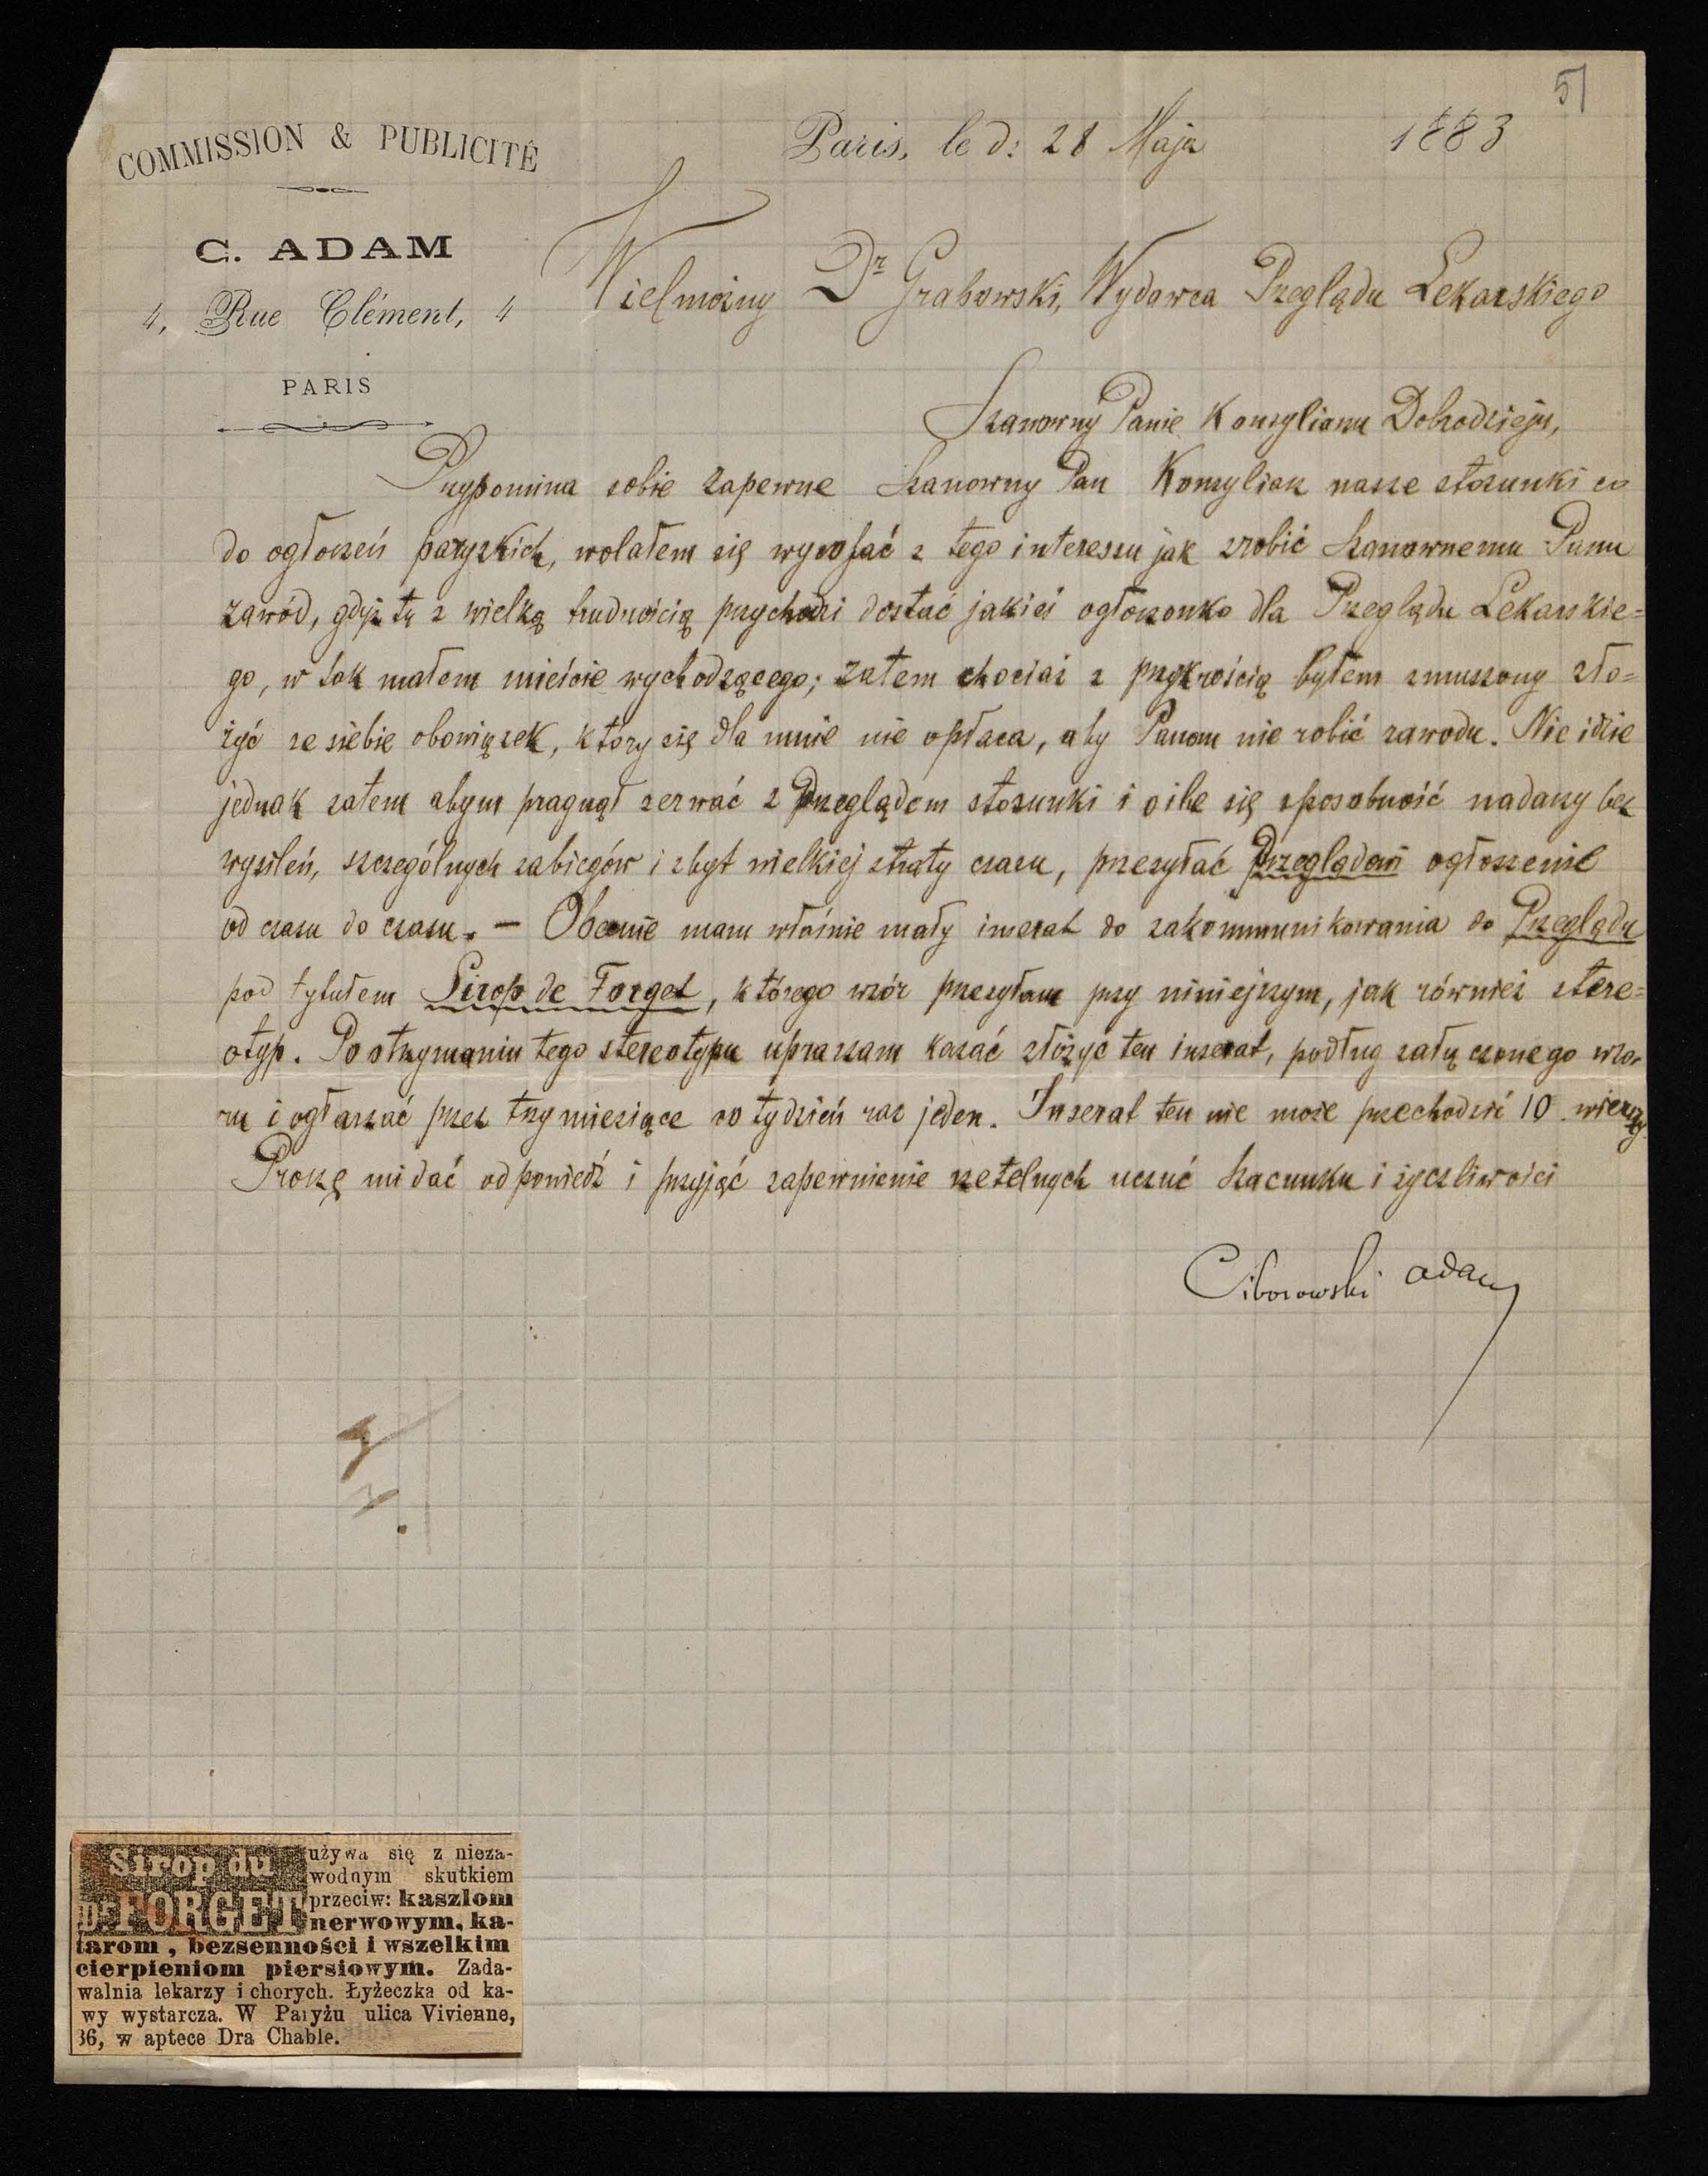 51
COMMISSION & PUBLICITÉ
C. ADAM
4, Rue Clément, 4
PARIS
Paris, le d: 28 Maja 1883
Wielmożny Dr Grabowski, Wydawca Przeglądu Lekarskiego
Szanowny Panie Konsyliarzu Dobrodzieju,
Przypomina sobie zapewne Szanowny Pan Konsyliarz nasze stosunki co
do ogłoszeń paryzkich, wolałem się wycofać z tego interessu jak zrobić Szanownemu Panu
zawód, gdyż tu z wielką trudnością przychodzi dostać jakieś ogłoszonko dla Przeglądu Lekarskie=
go, w tak małem mieście wychodzącego; zatem chociaż z przykrością byłem zmuszony zło=
żyć ze siebie obowiązek, który się dla mnie nie opłaca, aby Panom nie robić zawodu. Nie idzie
jednak zatem abym pragnął zerwać z Przeglądem stosunki i oile się sposobność nadarzy bez
wysileń, szczególnych zabiegów i zbyt wielkiej straty czasu, przesyłać Przeglądowi ogłoszenie
od czasu do czasu. — Obecnie mam właśnie mały inserat do zakommunikowania do Przeglądu
pod tytułem Sirop de Forget, którego wzór przesyłam przy niniejszym, jak również stere=
otyp. Po otrzymaniu tego stereotypu upraszam kazać złożyć ten inserat, podług załączonego wzo-
ru i ogłaszać przez trzy miesiące co tydzień raz jeden. Inserat ten nie może przechodzić 10 wierszy
Proszę mi dać odpowiedź i przyjąć zapewnienie rzetelnych uczuć szacunku i życzliwości
Ciborowski Adam
Sirop du
Dr FORGET
używa się z nieza-
wodnym skutkiem
przeciw: kaszlom
nerwowym, ka-
tarom, bezsenności i wszelkim
cierpieniom piersiowym. Zada-
walnia lekarzy i chorych. Łyżeczka od ka-
wy wystarcza. W Paryżu ulica Vivienne,
36, w aptece Dra Chable.